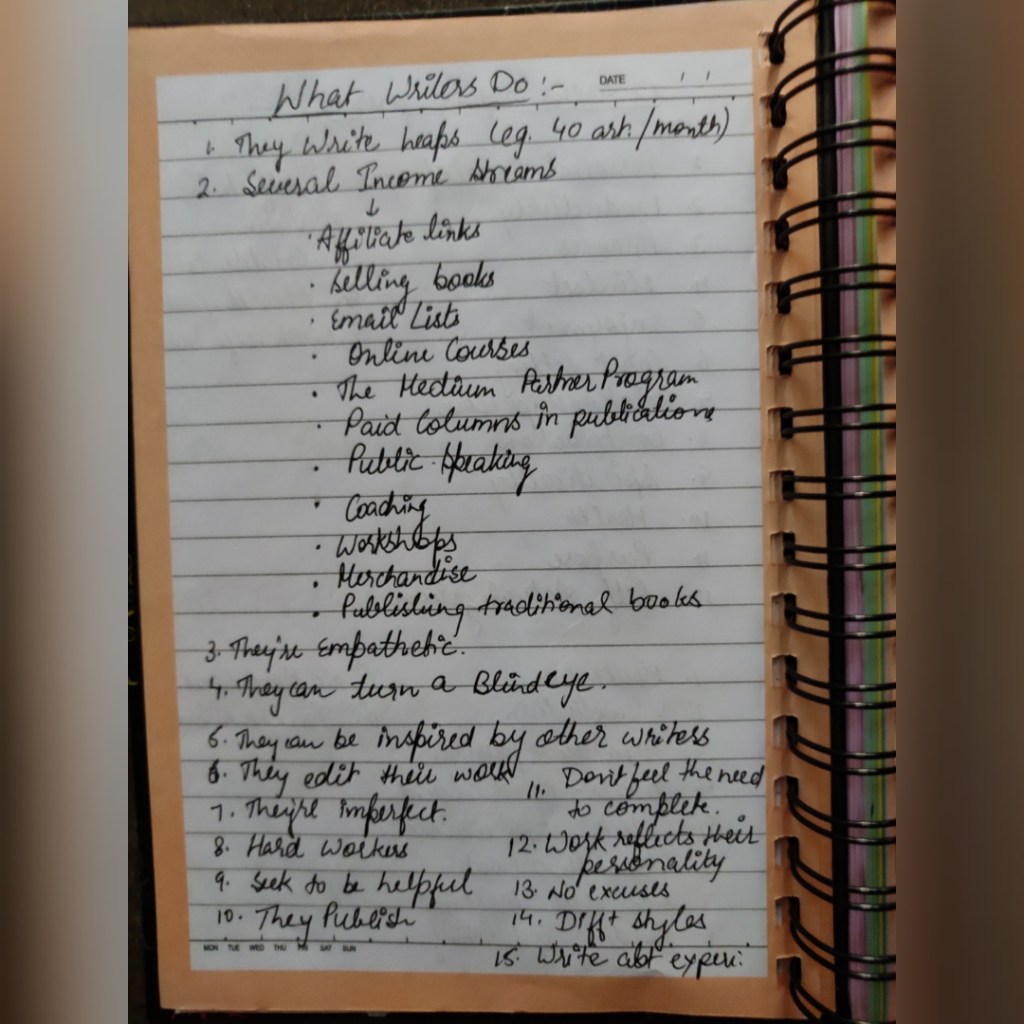 What Writers Do :-
DATE / /
1. They Write heaps (eg. 40 art. /month)
2. Several Income streams
↓
· Affiliate links
· Selling books
· Email Lists
· Online Courses
· The Medium Partner Program
· Paid Columns in publications
· Public Speaking
· Coaching
· Workshops
· Merchandise
· Publishing traditional books
3. They're Empathetic.
4. They can turn a Blind eye.
5. They can be inspired by other writers
6. They edit their work
7. They're imperfect.
8. Hard workers
9. Seek to be helpful
10. They Publish
11. Don't feel the need
to complete.
12. Work reflects their
personality
13. No excuses
14. Diff+ styles
15. Write abt experi.
MON TUE WED THU FRI SAT SUN